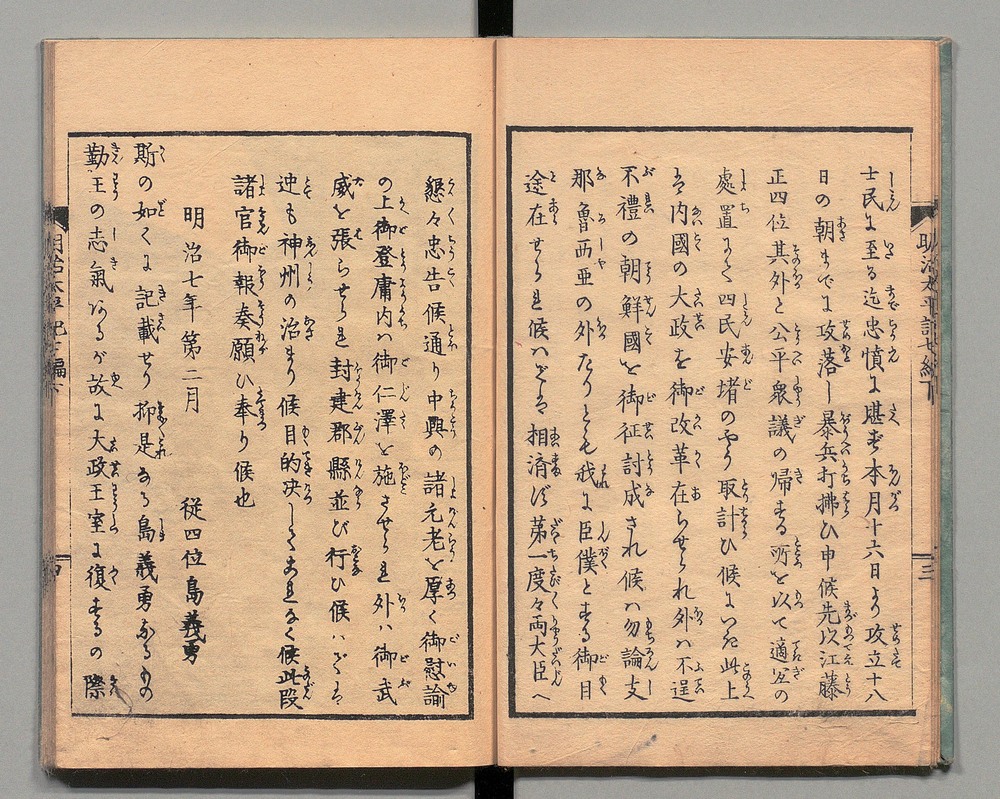 士民に至る迄忠憤に堪ず本月十六日より攻立十八
日の朝までに攻落し暴兵打拂ひ申候先以江藤
正四位其外と公平衆議の帰する所を以て適宜の
處置にて四民安堵のやう取計ひ候にいたり此上
は内國の大政を御改革在らせられ外は不逞
不禮の朝鮮國を御征討成され候ハ勿論支
那魯西亜の外たりとも我に臣僕とする御目
途在せられ候ハざる相済ず第一度々両大臣へ
懇々忠告候通り中興の諸元老を厚く御慰諭
の上御登庸内ハ御仁澤を施させられ外ハ御武
威を張らせられ封建郡縣並び行ひ候ハざるは
迚も神州の治まり候目的決してこれなく候此段
諸官御報奏願ひ奉り候也
明治七年第二月 従四位島義勇
斯の如くに記載せり抑是なる島義勇なるもの
勤王の志氣あるが故に大政王室に復するの際
明治太平記七編下 三
明治太平記七編下 四